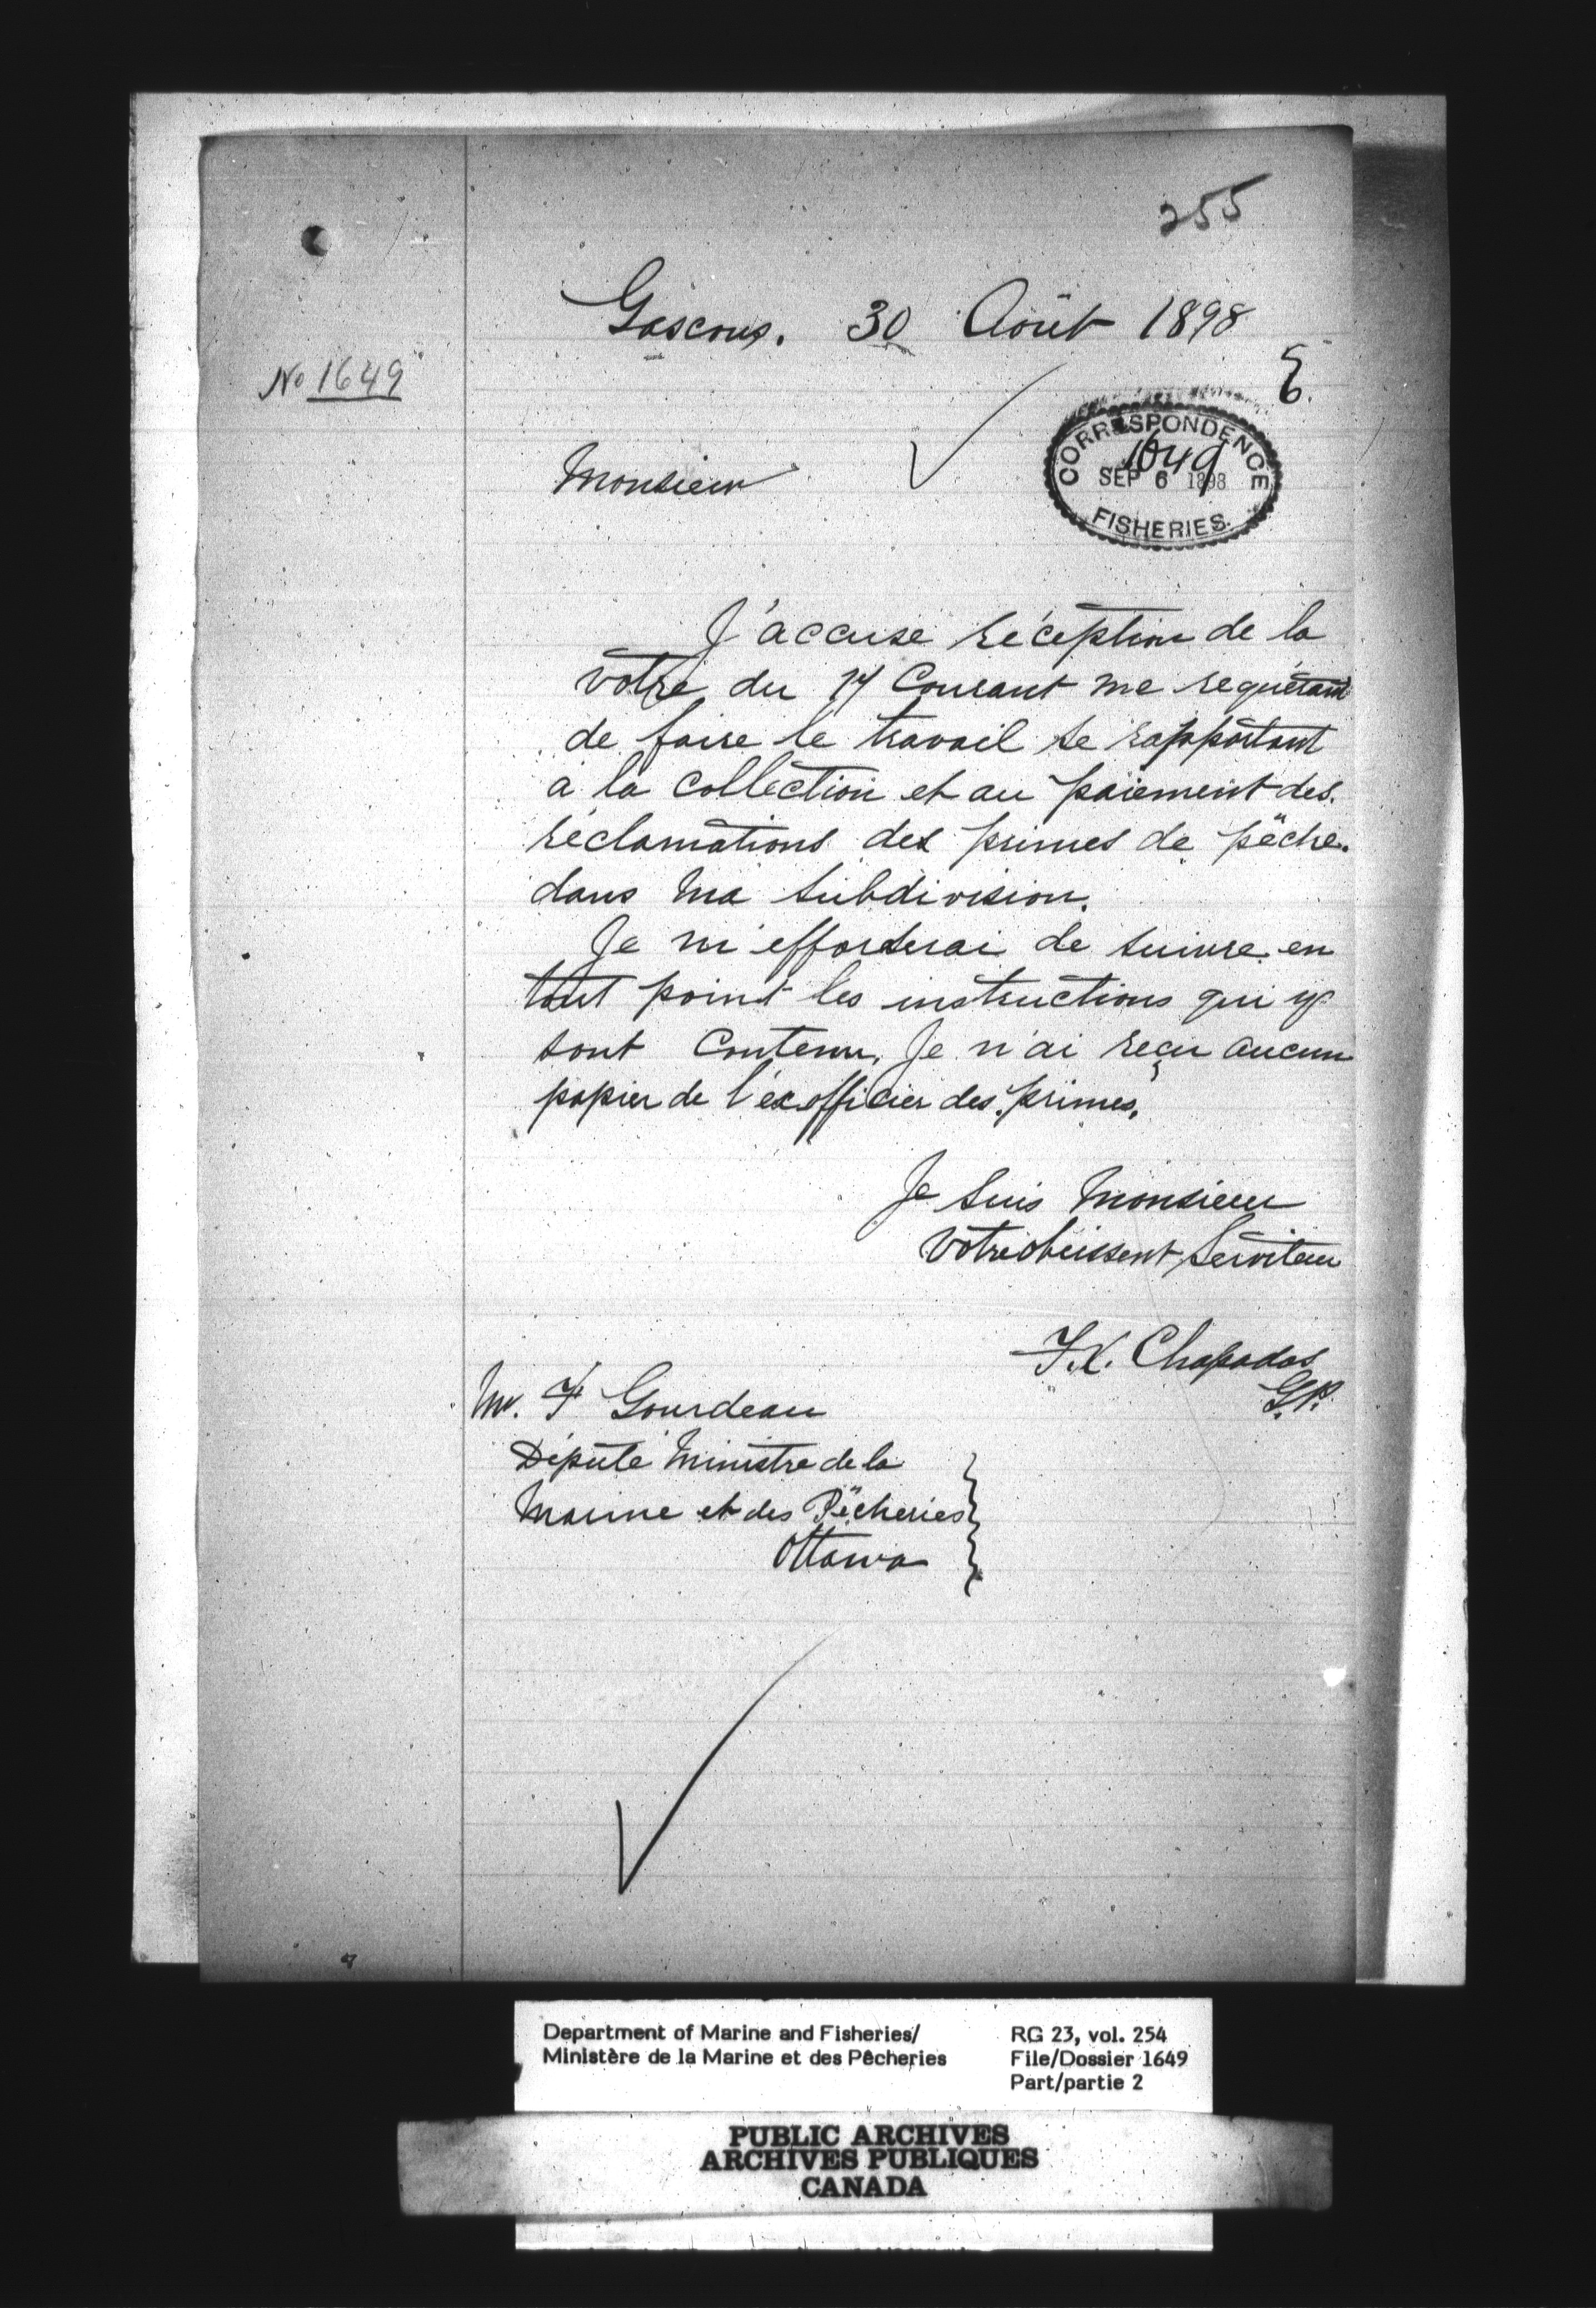 255
Gascons. 30 Août 1898
No 1649
E.
CORRESPONDENCE
1649
SEP 6 1898
FISHERIES.
Monsieur
J'accuse réception de la
votre du 17 Courant me requérant
de faire le travail se rapportant
a la collection et au paiement des
réclamations des primes de pêche.
dans ma subdivision.
Je m'efforserai de suivre en
tout point les instructions qui y
sont contenu. Je n'ai reçu aucun
papier de l'exofficier des primes.
Je suis Monsieur
Votre obeissent Serviteur
F.X. Chapados
G.P.
Mr. F Gourdeau
Député Ministre de la
Marine et des Pêcheries
Ottawa
Department of Marine and Fisheries/
Ministère de la Marine et des Pêcheries
RG 23, vol. 254
File/Dossier 1649
Part/partie 2
PUBLIC ARCHIVES
ARCHIVES PUBLIQUES
CANADA